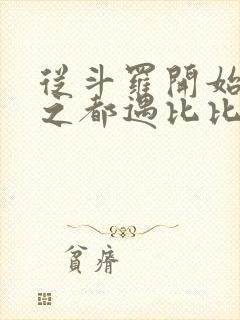 從斗羅開始
之都遇比比
貧瘠